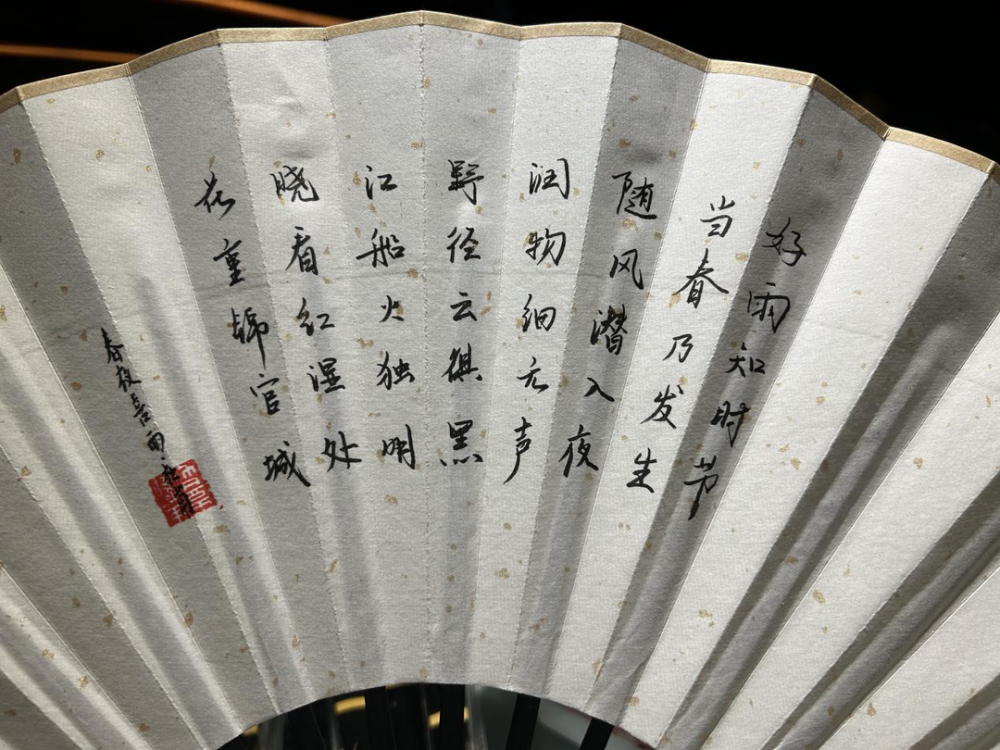 好雨知时节
当春乃发生
随风潜入夜
润物细无声
野径云俱黑
江船火独明
晓看红湿处
花重锦官城
春夜喜雨